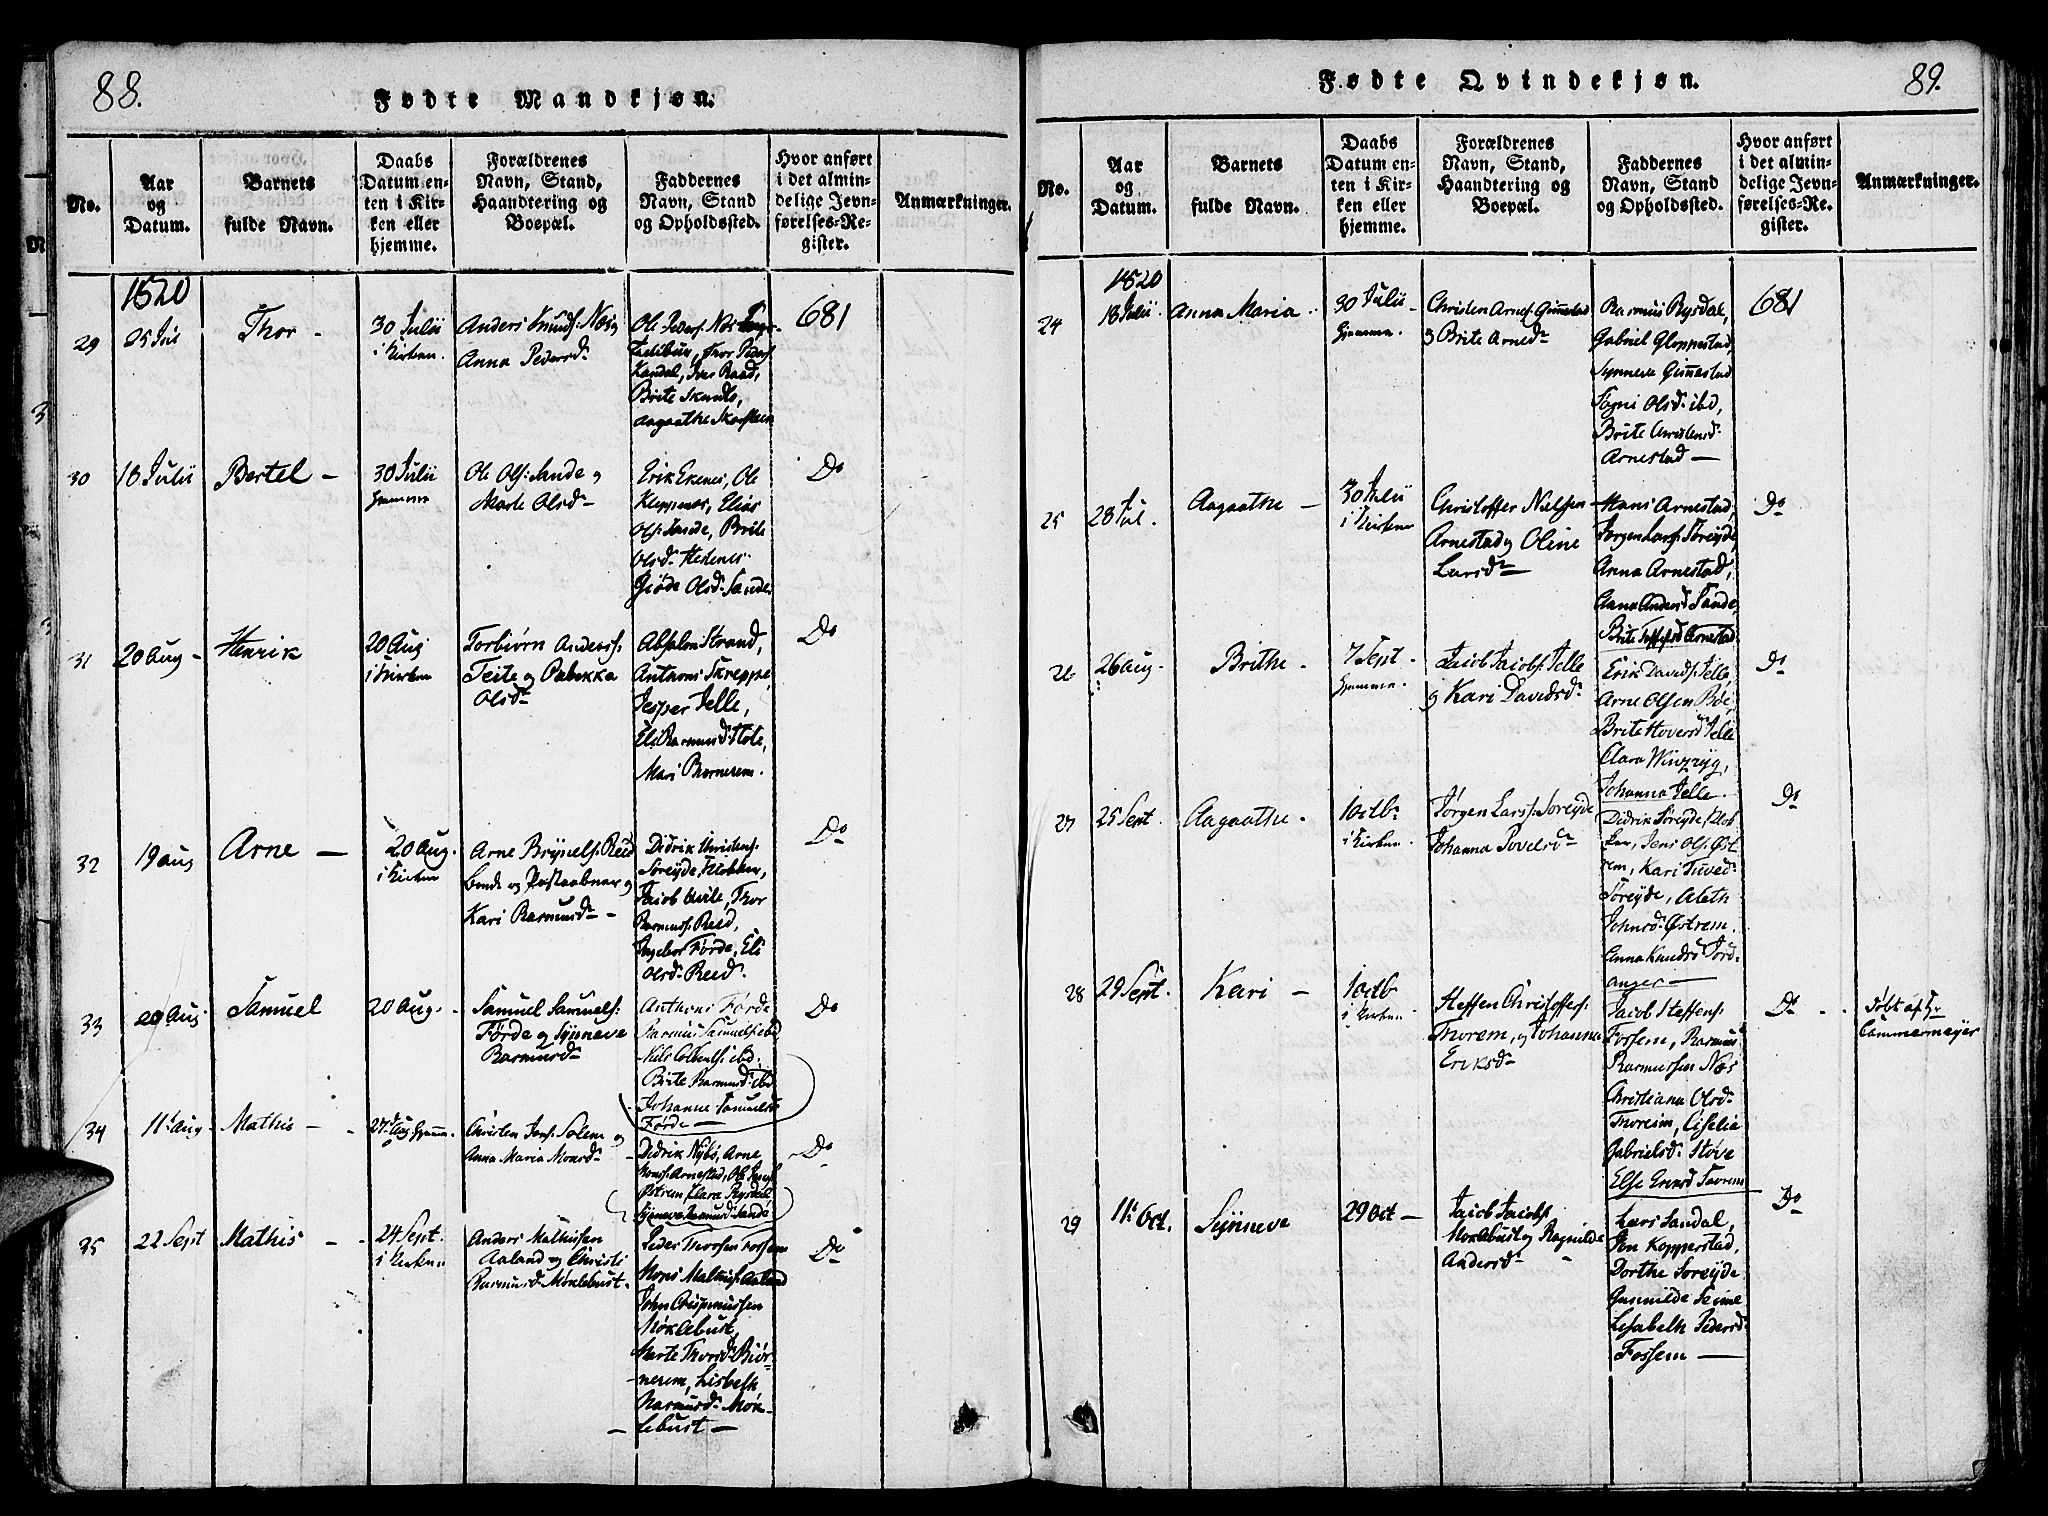 88.
Fødte Mandkjøn.
No.
Aar
og
Datum.
Barnets
fulde Navn.
Daabs
Datum en-
ten i Kir-
ken eller
hjemme.
Forældrenes
Navn, Stand,
Haandtering og
Boepæl.
Faddernes
Navn, Stand
og Opholdssted.
Hvor anført
i det almin-
delige Jevn-
førelses-Re-
gister.
Anmærkninger.
1820
29
25 Jul
Thor -
30 Julii
i Kirken.
Anders Knuds: Nøs og
Anna Pedersd
Ole Peders: Nøs
Thor Peders:
Kandal, Iver Raad,
Brite Skande,
Aagaathe
681
30
18 Julii
Bertel -
30 Julii
hjemme
Ole Ols: Sande og
Marte Olsd
Erik Ekenes, Ole
Kleppenes, Elias
Ols: Sande, Brite
Olsd: Hedenes
Giøde Olsd: Sande
Do
31
20 Aug -
Henrik
20 Aug
i Kirken
Torbiørn Anders:
Teite og Rabekka
Olsd
Absalon Strand,
Anthoni Skreppe,
Jesper Jelle,
Eli Rasmusd: Støle,
Mari Biørnerem.
Do
32
19 Aug
Arne -
20 Aug.
i Kirken
Arne Brynels: Reed
bonde og Postaabner og
Kari Rasmusd -
Didrik Christens:
Søreyde Klokker,
Jacob Hvile, Thor
Rasmus: Reed,
Ingebor Førde, Eli
Olsd: Reed.
Do
33
20 Aug
Samuel
20 Aug. -
Samuel Samuels:
Førde og Synneve
Rasmusd
Anthoni Førde
Rasmus Samuels: ibd
Nils Colbens: ibd.
Brite Rasmusd: ibd
Johanne Samuelsd
Førde -
Do
34
11 Aug
Mathis - -
27 Aug hjemme.
Christen Jons: Solem og
Anna Maria Monsd
Didrik Nybø, Arne
Mons: Arnestad, Ole
Østrem Clara Rysdal
Synneve Rasmusd: Sande
Do
35
22 Sept
Mathis - -
24 Sept.
i Kirken
Anders Mathisen
Aaland og Christi
Rasmusd: Møklebust.
Peder Thorsen Fossem
Mons Mathis: Aaland
John Rasmussen
Møklebust,
Marte Thorsd: Biør-
nerem, Lisbeth
Rasmusd: Møk-
- lebust -
Do
89.
Fødte Qvindekjøn.
No.
Aar
og
Datum.
Barnets
fulde Navn.
Daabs
Datum en-
ten i Kir-
ken eller
hjemme.
Forældrenes
Navn, Stand,
Haandtering og
Boepæl.
Faddernes
Navn, Stand
og Opholdssted.
Hvor anført
i det almin-
delige Jevn-
førelses-Re-
gister.
Anmærkninger.
1820
24
18 Julii
Anna Maria
30 Julii
hjemme.
Christen Arnes: Gimestad
og Brite Arnesd
Rasmus Rysdal,
Gabriel Gloppestad,
Synneve Gimestad
Olsd: ibd,
Brite Christensd:
Arnestad -
681
25
28 Jul.
Aagaathe -
30 Julii
i Kirken
Christoffer Nielsen
Arnestad og Oline
Larsd
Hans Arnestad,
Jørgen Lars: Søreyde,
Anna Arnestad,
Anna Andersd Sande,
Brite Arnestad
Do
26
26 Aug.
Brithe -
7 Sept.
hjemme.
Jacob Jacobs: Jelle
og Kari Davidsd
Erik Davids: Jelle,
Arne Olsen Bøe,
Brite Hoversd Jelle
Clara
Johanna Jelle.
Do
27
25 Sept.
Aagaathe -
1 octbr
i Kirken
Jørgen Lars: Søreyde
Johanna Povelsd
Didrik Søreyde Klok
ker, Jens Ols: Øst
rem, Kari Tveed
Søreyde, Aleth
Johnsd: Østrem.
Anna Knudsd Jord-
anger -
Do
28
29 Sept.
Kari -
1 octb
i Kirken
Steffen Christoffers:
Thorem, og Johanna
Eriksd
Jacob Steffens:
Fossem, Rasmus
Rasmussen Nøs
Christiana Olsd
Thoreim, Ciselia
Gabrielsd: Støve
Else
Do -
Døbt af Hr
Cammermeyer
29
11 Oct.
Synneve
29 Oct -
Jacob Jacobs:
Møklebust og Ragnilde
Andersd
Lars Sandal,
Jon Kopperstad,
Dorthe Søreyde
Gunnilde Seime
Lisabeth Pedersd
Fossem -
Do